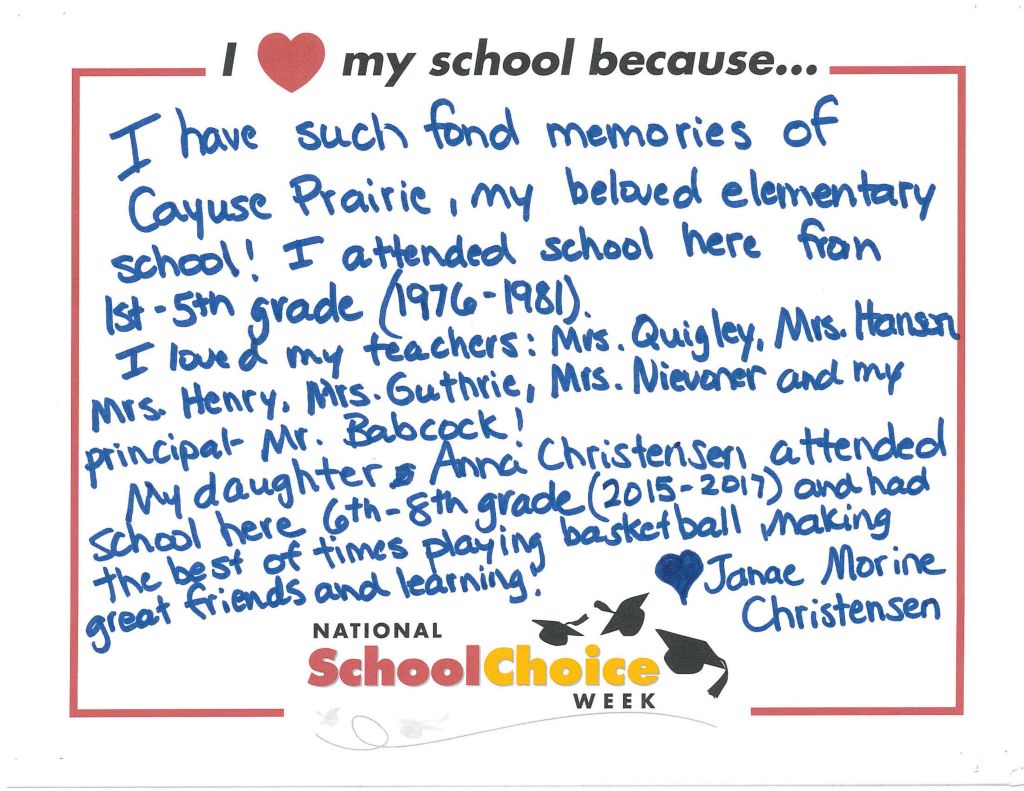 I ❤ my school because...
I have such fond memories of
Cayuse Prairie, my beloved elementary
school! I attended school here from
1st-5th grade (1976-1981).
I loved my teachers: Mrs. Quigley, Mrs. Hanson
Mrs. Henry, Mrs. Guthrie, Mrs. Nievoner and my
principal- Mr. Babcock!
My daughter Anna Christensen attended
school here 6th-8th grade (2015-2017) and had
the best of times playing basketball, making
great friends and learning!
Janae Morine
Christensen
NATIONAL
SchoolChoice
WEEK